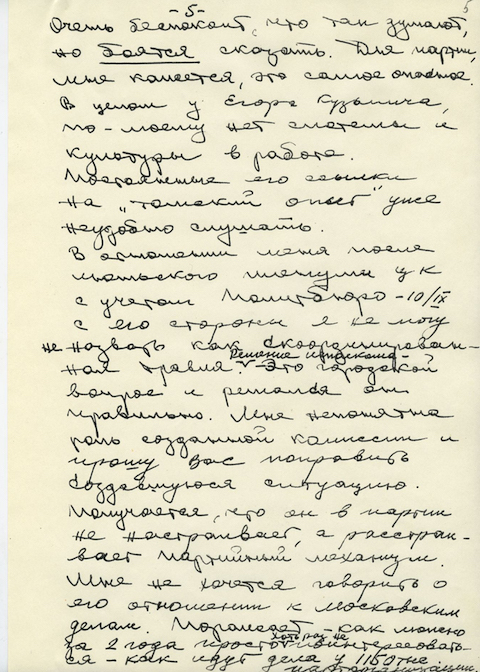 -5-
5
Очень беспокоит, что так думают,
но боятся сказать. Для партии,
мне кажется, это самое опасное.
В целом у Егора Кузьмича,
по-моему нет системы и
культуры в работе.
Постоянные его ссылки
на „томский опыт" уже
неудобно слушать.
В отношении меня после
июньского пленума ЦК
с учетом Политбюро - 10/IX
с его стороны я не могу
не назвать как скоординирован-
ная травля. Решение исполкома -
это городской
вопрос и решался он
правильно. Мне непонятна
роль созданной комиссии и
прошу Вас поправить
создавшуюся ситуацию.
Получается, что он в партии
не настраивает, а расстраи-
вает партийный механизм.
Мне не хочется говорить о
его отношении к московским
делам. Поражает - как можно
за 2 года просто хоть раз не
поинтересовать-
ся - как идут дела у 1150 тыс.
парторганизации.